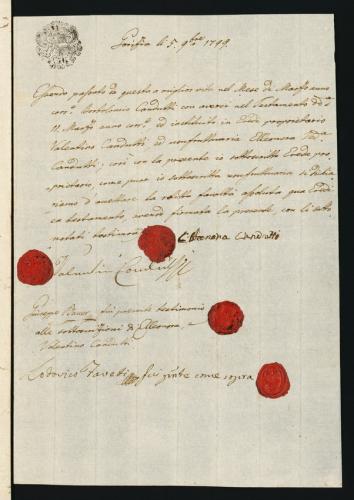 Gorizia li 5. 9bre 1799.
Essendo passato da questa a miglior vita nel Mese di Marzo anno
corr. Bortolomio Candutti con aversi nel Testamento dd.
11. Marzo anno corr. ed instituito in Erede proprietario
Valentino Candutti, ed usufruttuaria Elleonora Ved.a
Candutti; così con la presente io sottoscritto Erede pro-
prietario, come pure io sottoscritta usufruttuaria si dichia-
riamo d'accettare la relitta facoltà
testamento, avendo firmata la presente, con li
testimoni
Elleonora Candutti
Valentin Candutti
Giuseppe fui presente testimonio
alle sottoscrizioni di Elleonora, e
Valentino Candutti
Lodovico fui pnte come sopra